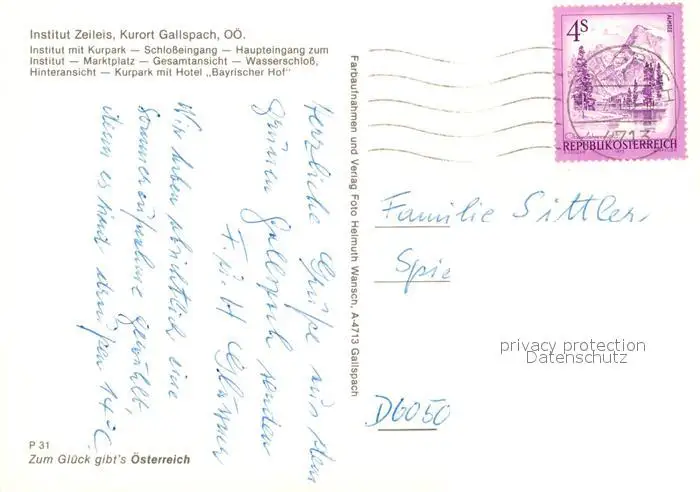 Institut Zeileis, Kurort Gallspach, OÖ.
Institut mit Kurpark — Schloßeingang — Haupteingang zum
Institut — Marktplatz — Gesamtansicht — Wasserschloß,
Hinteransicht — Kurpark mit Hotel „Bayrischer Hof"
Herzliche Grüße aus dem
grünen Gallspach senden
F. u. H
Wir haben absichtlich eine
Sommeraufnahme gewählt,
denn es sind draußen 14°C
P 31
Zum Glück gibt's Österreich
Farbaufnahmen und Verlag Foto Helmuth Wansch, A-4713 Gallspach
4S
ALMSEE
REPUBLIK ÖSTERREICH
4713
Familie Sittler,
Spie
privacy protection
Datenschutz
D6050